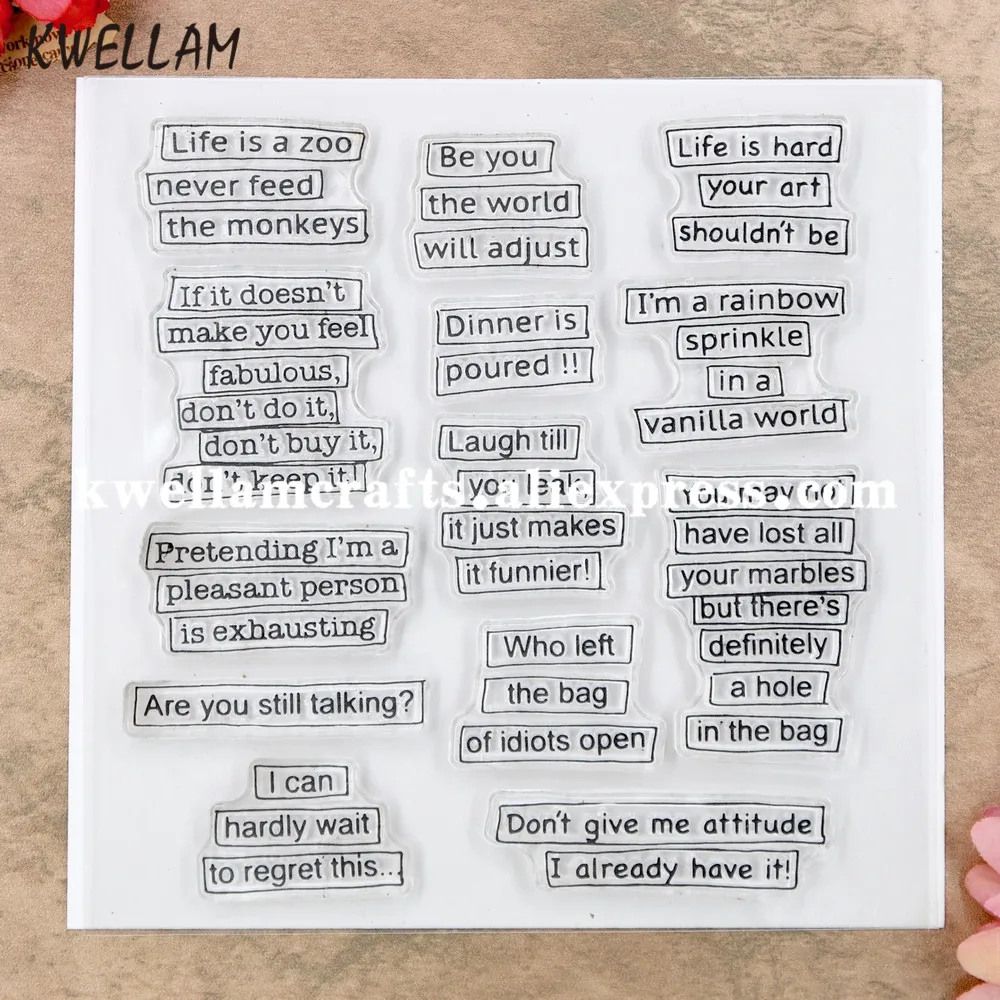 KWELLAM
Life is a zoo
never feed
the monkeys
Be you
the world
will adjust
Life is hard
your art
shouldn't be
If it doesn't
make you feel
fabulous,
don't do it,
don't buy it,
don't keep it!
Dinner is
poured !!
I'm a rainbow
sprinkle
in a
vanilla world
Laugh till
you leak
it just makes
it funnier!
kwellamcrafts.aliexpress.com
You may not
have lost all
your marbles
but there's
definitely
a hole
in the bag
Pretending I'm a
pleasant person
is exhausting
Who left
the bag
of idiots open
Are you still talking?
I can
hardly wait
to regret this...
Don't give me attitude
I already have it!